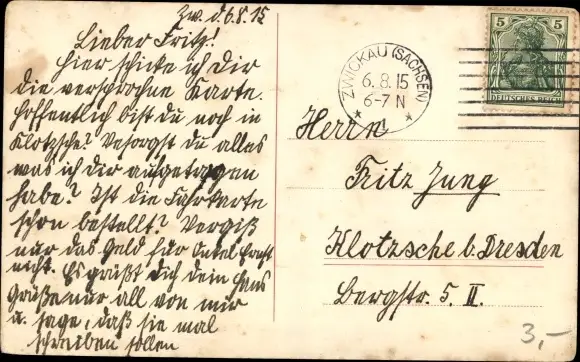 Zw. d. 6.8.15
Lieber Fritz!
Hier schicke ich Dir
die versprochne Karte.
Hoffentlich bist du noch in
Klotzsche? Besorgst du alles
was ich dir aufgetragen
habe? Ist die Fahrkarte
schon bestellt? Vergiß
nur das Geld für Onkel Ernst
nicht. Es grüßt Dich dein Hans
Grüße nur all von mir
u. sage, daß sie mal
schreiben sollen
ZWICKAU (SACHSEN)
6.8.15
6-7 N
* 1 *
5 5
DEUTSCHES REICH
Herrn
Fritz Jung
Klotzsche b. Dresden
Bergstr. 5. II.
3,-